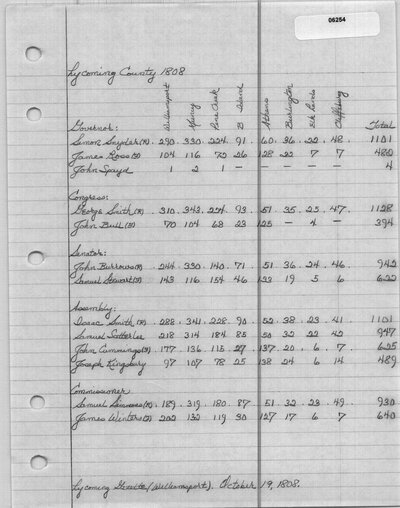 06254
Lycoming County 1808
Williamsport Muncy Pine Creek B Island Athens Burlington Elk Lands
Total
Governor:
Simon Snyder (R) 290. 330. 224. 91. 60. 36. 22. 48. 1101
James Ross (F) 104 116 72 26 128 22 7 7 482
John Spayd 1 2 1 — — — — 4
Congress:
George Smith (R) 310. 343. 224. 93. 51. 35. 25. 47. 1128
John Bull (F) 70 104 68 23 125 — 4 — 394
Senator:
John Burrows (R) 244 330. 140. 71. 51. 36. 24. 46. 942
Samuel Stewart (F) 143 116 154 46 133 19 5 6 622
Assembly:
Isaac Smith (R) 288. 341. 228. 90. 52. 38. 23. 41. 1101
Samuel Satterlee 218 314 184 85 50 32 22 42 947
John Cummings (F) 177. 136. 115. 27. 137. 20. 6. 7. 625
Joseph Kingsbury 97 107 78 25 138 24 6 14 489
Commissioner
Samuel (R). 189. 319. 180. 87. 51. 32. 23. 49. 930
James Winter (F) 202 132 119 30 127 17 6 7 640
Lycoming Gazette (Williamsport). October 19, 1808.